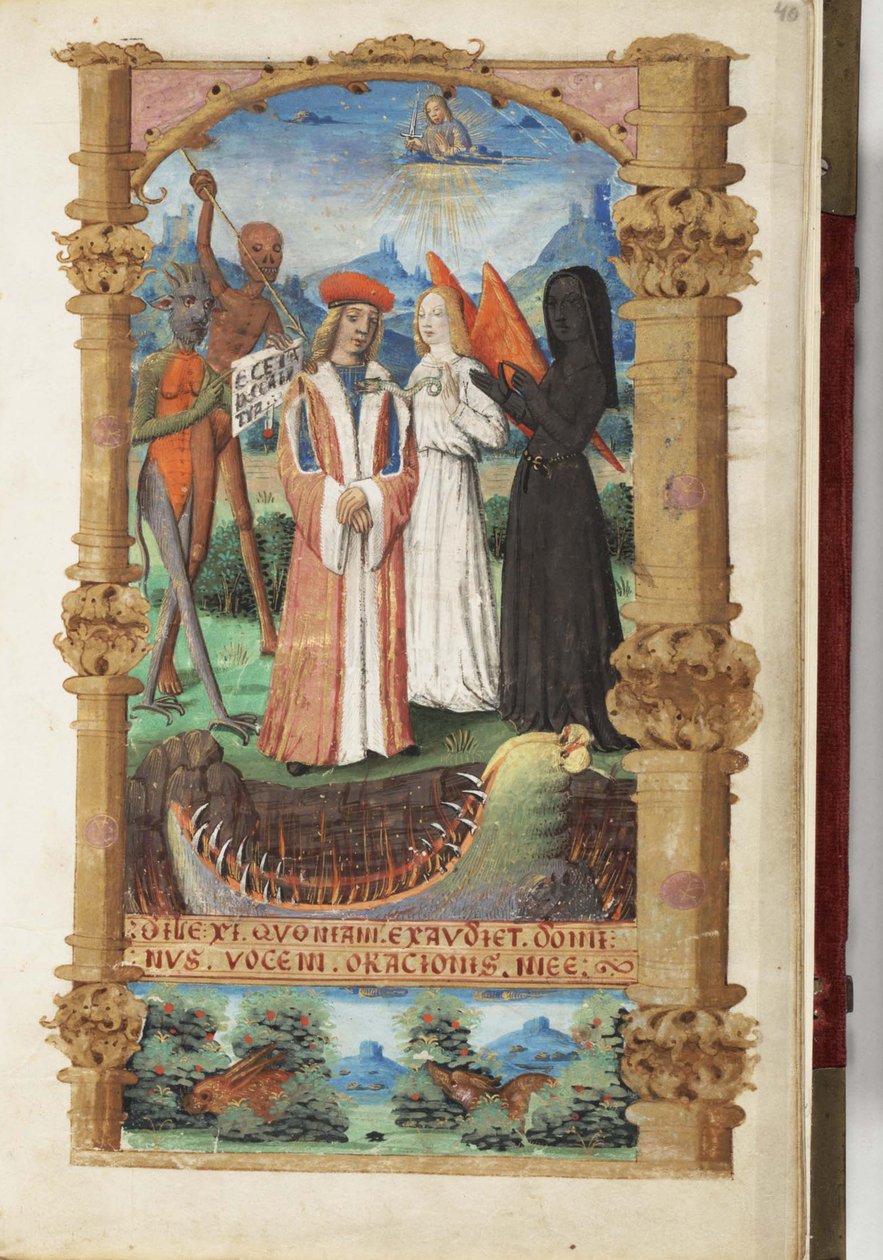 40
E CETA
DILE XI. QVONIAM. EXAVDIET. DOMI:
NVS. VOCEM. ORACIONIS. MEE: